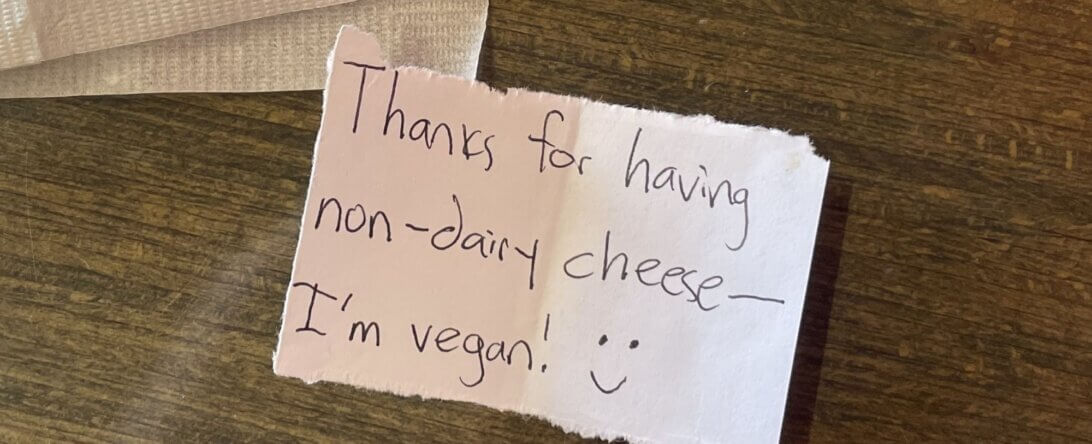 Thanks for having
non-dairy cheese—
I'm vegan! :)